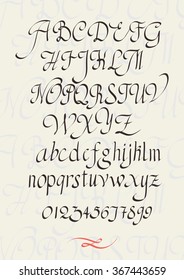 ABCDEFG
HIJKLM
NOPQRSTUV
WXYZ
abcdefghijklm
nopqrstuvwxyz
0123456789
www.shutterstock.com · 367443659